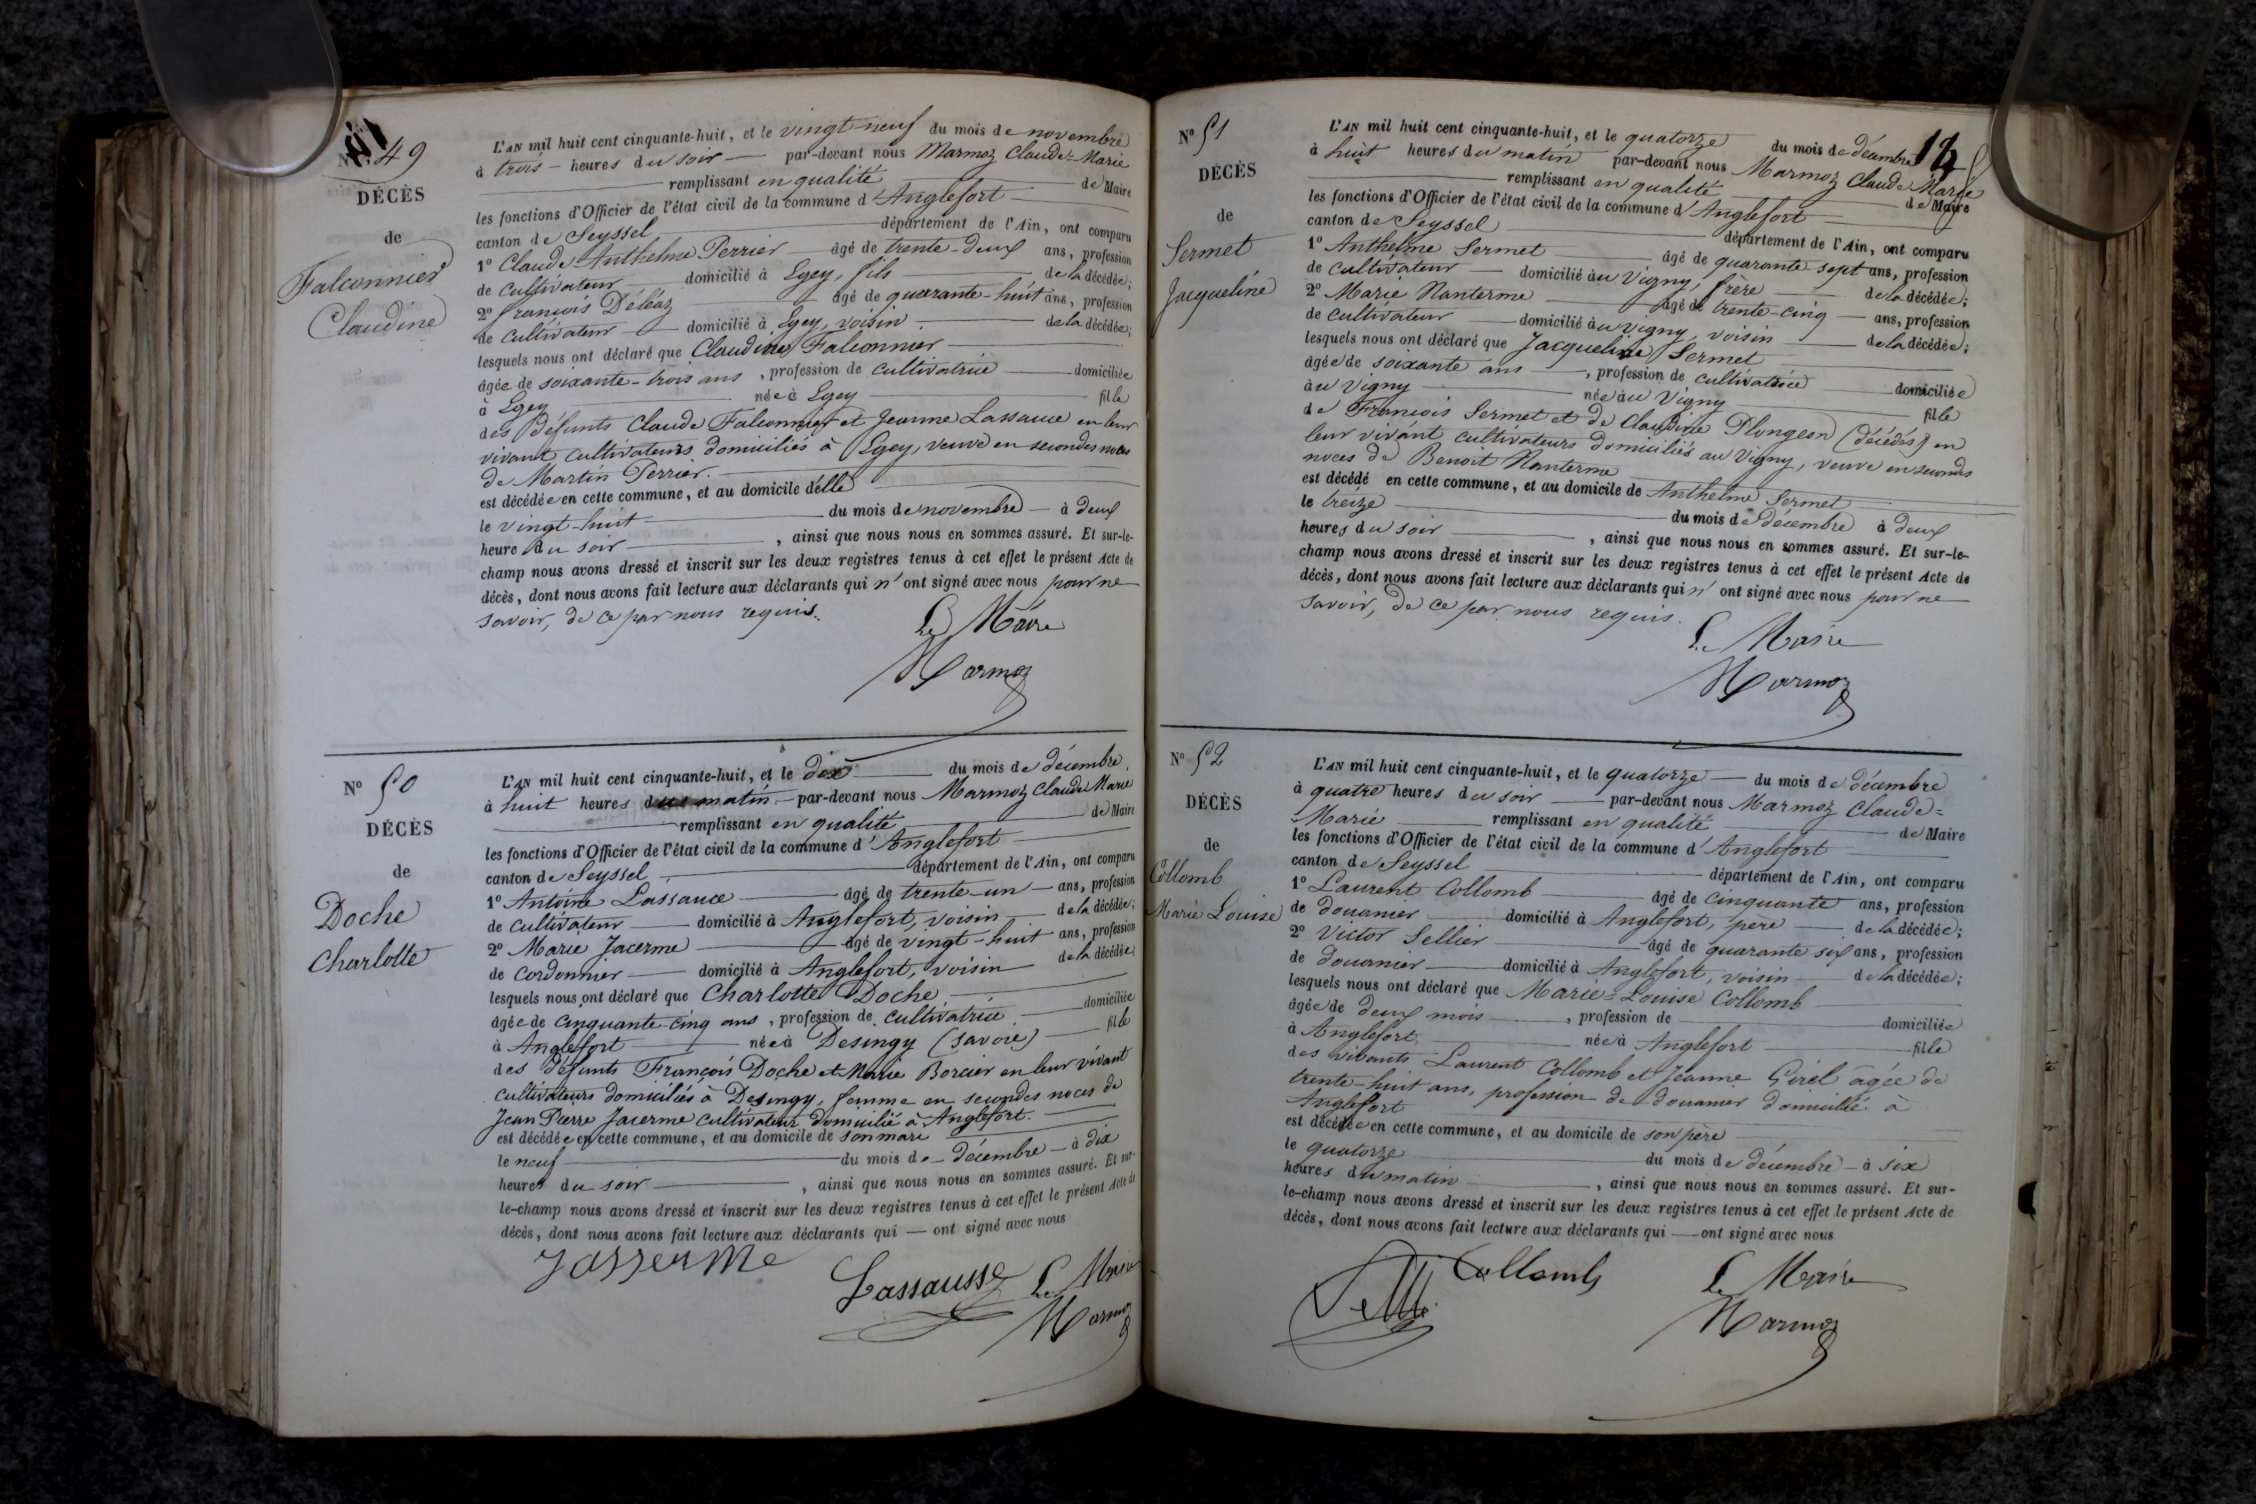 Nº 49
DÉCÈS
de
Falconnier
Claudine
L'AN mil huit cent cinquante-huit, et le vingt-neuf du mois de novembre
à trois heures du soir par-devant nous Marmoz Claude-Marie
remplissant en qualité de Maire
les fonctions d'Officier de l'état civil de la commune d'Anglefort
canton de Seyssel département de l'Ain, ont comparu
1º Claude Anthelme Perrier âgé de trente-deux ans, profession
de cultivateur domicilié à Egey, fils de la décédée;
2º François Déléaz âgé de quarante-huit ans, profession
de cultivateur domicilié à Egey, voisin de la décédée;
lesquels nous ont déclaré que Claudine Falconnier
âgée de soixante-trois ans, profession de cultivatrice domiciliée
à Egey née à Egey fille
des défunts Claude Falconnier et Jeanne Lassauce en leur
vivant cultivateurs domiciliés à Egey, veuve en secondes noces
de Martin Perrier.
est décédée en cette commune, et au domicile d'elle
le vingt-huit du mois de novembre à deux
heure du soir, ainsi que nous nous en sommes assuré. Et sur-le-
champ nous avons dressé et inscrit sur les deux registres tenus à cet effet le présent Acte de
décès, dont nous avons fait lecture aux déclarants qui n'ont signé avec nous pour ne
savoir, de ce par nous requis.
Le Maire
Marmoz
Nº 50
DÉCÈS
de
Doche
Charlotte
L'AN mil huit cent cinquante-huit, et le dix du mois de décembre
à huit heures du matin par-devant nous Marmoz Claude Marie
remplissant en qualité de Maire
les fonctions d'Officier de l'état civil de la commune d'Anglefort
canton de Seyssel département de l'Ain, ont comparu
1º Antoine Lassauce âgé de trente-un ans, profession
de cultivateur domicilié à Anglefort, voisin de la décédée;
2º Marie Jacerme âgé de vingt-huit ans, profession
de cordonnier domicilié à Anglefort, voisin de la décédée;
lesquels nous ont déclaré que Charlotte Doche
âgée de cinquante-cinq ans, profession de cultivatrice domiciliée
à Anglefort née à Desingy (Savoie) fille
des défunts François Doche et Marie Borcier en leur vivant
cultivateurs domiciliés à Desingy, femme en secondes noces de
Jean Pierre Jacerme cultivateur domicilié à Anglefort.
est décédée en cette commune, et au domicile de son mari
le neuf du mois de décembre à dix
heures du soir, ainsi que nous nous en sommes assuré. Et sur-
le-champ nous avons dressé et inscrit sur les deux registres tenus à cet effet le présent Acte de
décès, dont nous avons fait lecture aux déclarants qui ont signé avec nous
Jasserme
Lassausse Le Maire
Marmoz
Nº 51
DÉCÈS
de
Sermet
Jacqueline
L'AN mil huit cent cinquante-huit, et le quatorze du mois de décembre
à huit heures du matin par-devant nous Marmoz Claude Marie
remplissant en qualité de Maire
les fonctions d'Officier de l'état civil de la commune d'Anglefort
canton de Seyssel département de l'Ain, ont comparu
1º Anthelme Sermet âgé de quarante sept ans, profession
de cultivateur domicilié au Vigny, frère de la décédée;
2º Marie Nanterme âgé de trente-cinq ans, profession
de cultivateur domicilié au Vigny, voisin de la décédée;
lesquels nous ont déclaré que Jacqueline Sermet
âgée de soixante ans, profession de cultivatrice domiciliée
au Vigny née au Vigny fille
de François Sermet et de Claudine Plongeon (décédés) en
leur vivant cultivateurs domiciliés au Vigny, veuve en secondes
noces de Benoit Nanterme
est décédé en cette commune, et au domicile de Anthelme Sermet
le treize du mois de décembre à deux
heures du soir, ainsi que nous nous en sommes assuré. Et sur-le-
champ nous avons dressé et inscrit sur les deux registres tenus à cet effet le présent Acte de
décès, dont nous avons fait lecture aux déclarants qui n'ont signé avec nous pour ne
savoir, de ce par nous requis.
Le Maire
Marmoz
Nº 52
DÉCÈS
de
Collomb
Marie Louise
L'AN mil huit cent cinquante-huit, et le quatorze du mois de décembre
à quatre heures du soir par-devant nous Marmoz Claude=
Marie remplissant en qualité de Maire
les fonctions d'Officier de l'état civil de la commune d'Anglefort
canton de Seyssel département de l'Ain, ont comparu
1º Laurent Collomb âgé de cinquante ans, profession
de douanier domicilié à Anglefort, père de la décédée;
2º Victor Sellier âgé de quarante six ans, profession
de douanier domicilié à Anglefort, voisin de la décédée;
lesquels nous ont déclaré que Marie=Louise Collomb
âgée de deux mois, profession de domiciliée
à Anglefort née à Anglefort fille
des vivants Laurent Collomb et Jeanne Girel âgée de
trente-huit ans, profession de douanier domicilié à
Anglefort
est décédée en cette commune, et au domicile de son père
le quatorze du mois de décembre à six
heures du matin, ainsi que nous nous en sommes assuré. Et sur-
le-champ nous avons dressé et inscrit sur les deux registres tenus à cet effet le présent Acte de
décès, dont nous avons fait lecture aux déclarants qui ont signé avec nous
Collomb Le Maire
Marmoz